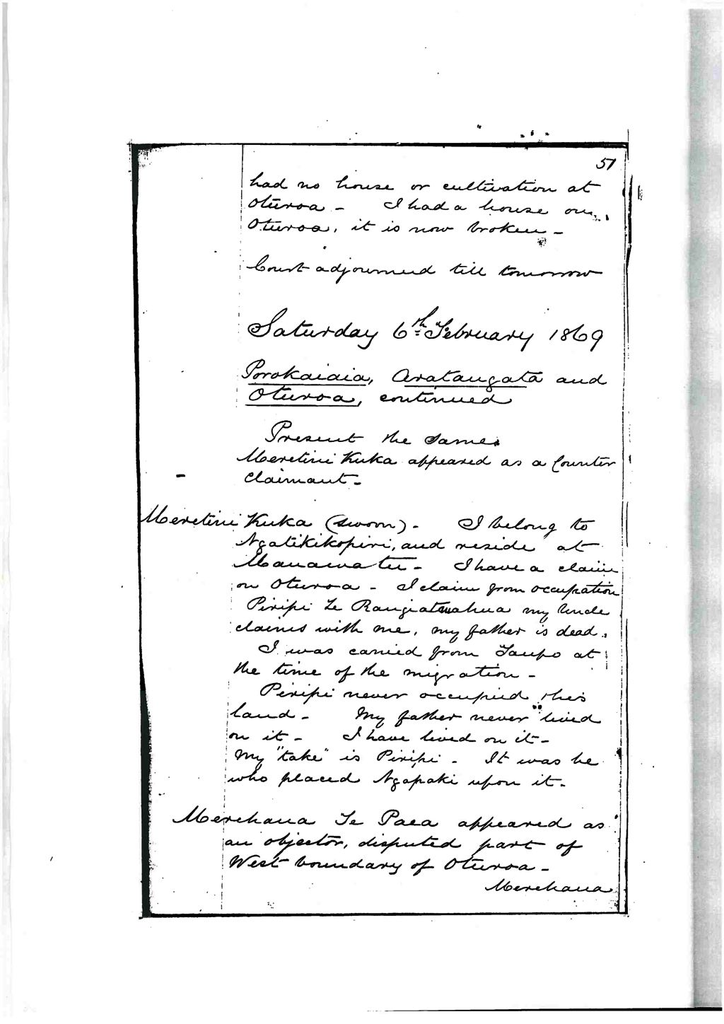 51
had no house or cultivation at
Oturoa - I had a house on
Oturoa, it is now broken -
Court adjourned till tomorrow
Saturday 6th February 1869
Porokaiaia, Aratangata and
Oturoa, continued
Present the same
Meretini Kuka appeared as a Counter
Claimant -
Meretini Kuka (sworn) - I belong to
Ngatikikopiri, and reside at
Manawatu - I have a claim
on Oturoa - I claim from occupation
Piripi Te Rangiatuahua my Uncle
claims with me, my father is dead,
I was carried from Taupo at
the time of the migration -
Piripi never occupied this
land - My father never lived
on it - I have lived on it -
My "take" is Piripi - It was he
who placed Ngapaki upon it -
Merehana Te Paea appeared as
an objector, disputed part of
West boundary of Oturoa -
Merehana